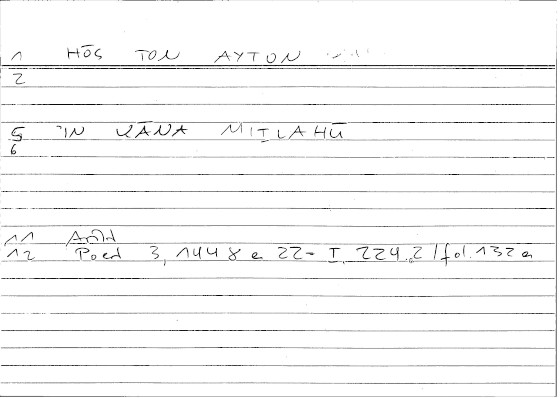 1 HŌS TON AYTON
2
5 'IN KĀNA MITLAHŪ
6
11 Arist
12 Poet 3, 1448 a 22 - I, 224.2 / fol. 132 a